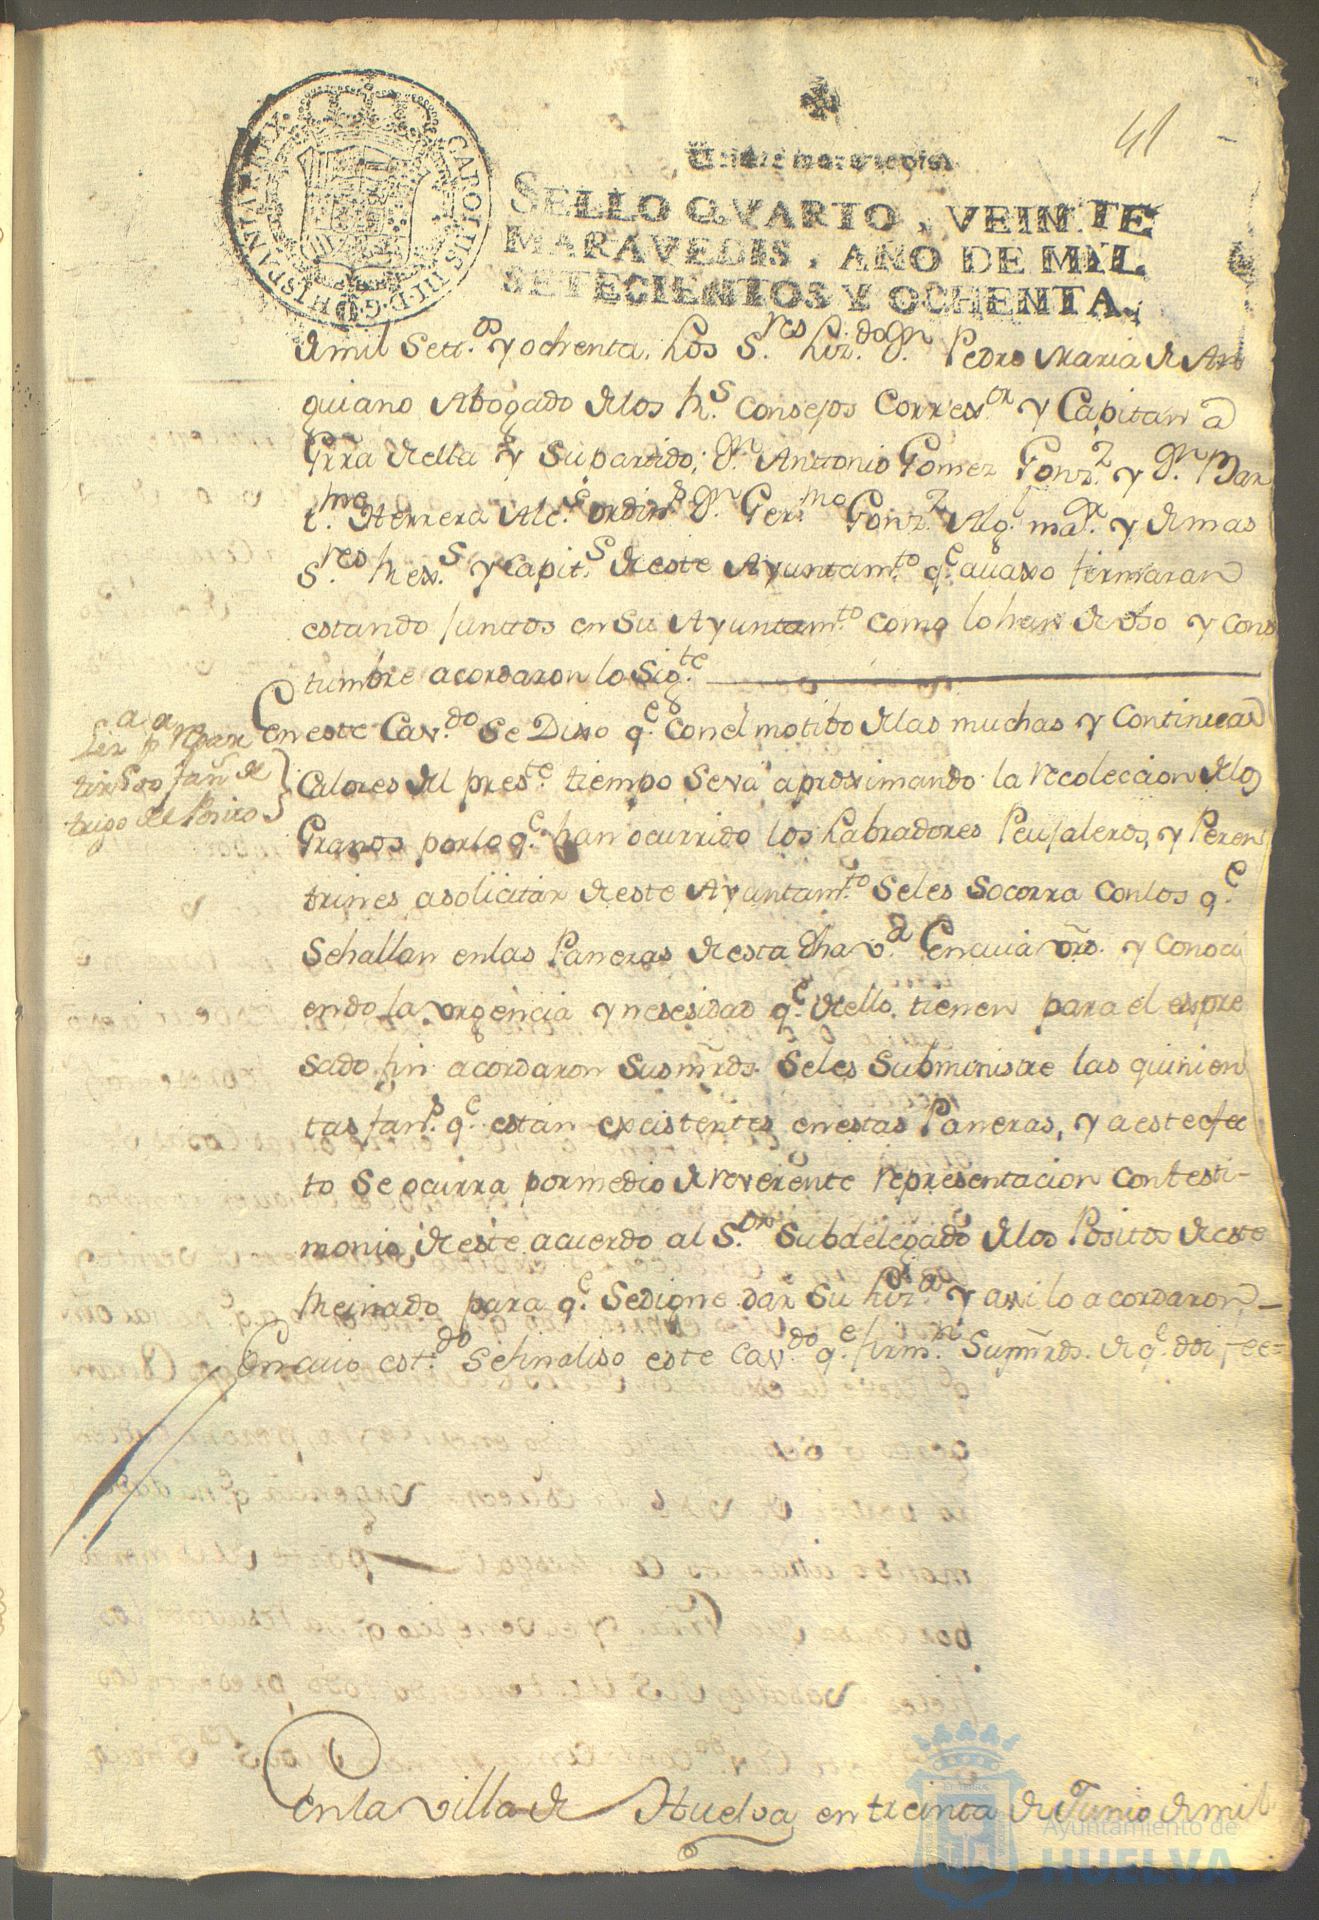 41
CAROLUS III D G HISPANIAR REX
Veinte maravedis
SELLO QVARTO, VEINTE
MARAVEDIS, AÑO DE MIL
SETECIENTOS Y OCHENTA.
de mil Settos. y ochenta. Los Sres. Lizdo. Dn. Pedro Maria de An
guiano Abogado delos Rs. Consejos Correxor. y Capitan a
Grra della y Supartido; Dn. Anttonio Gomez Gonzz. y Dn. Bar
tme. Herrera Alces. ordins. Dn. Germo. Gonzz. Alg.l mar. y demas
Sres. Rexs. y Capits. de este Ayuntamto. qe. avaxo firmaran
estando Junttos en Su Ayuntamto. como lo han de Vso y Cons
tumbre acordaron lo Sigte.
En este Cavdo. Se Dixo qe. Con el motibo delas muchas y Continuas
Calores del preste. tiempo Seva aproximando la recoleccion delos
Granos porlo qe. han ocurrido los Labradores Peujaleros, y Peren
trines asolicitar de este Ayuntamto. Seles Socorra Conlos qe.
Sehallan enlas Paneras de esta dha va. En cuia vrd. y Conoci
endo la vrgencia y nesesidad qe. dello tienen para el espre
sado fin acordaron Susmrds. Seles Subministre las quinien
tas fans. qe. estan existentes enestas Paneras, y a este efec
to Se ocurra pormedio de reverente representacion Con testi-
monio de este acuerdo al Sor. Subdelegado delos Positos de este
Reinado para qe. Sedigne dar Su Liza. y assi lo acordaron,
En cuio estdo. Sefinaliso este Cavdo. qe. firmn. Sumrds. de qe. doi fee=
Liza. pa. Repar
tir 500 fañs. de
trigo del Posito
En la villa de Huelva en treinta de Junio de mil
Ayuntamiento de
HUELVA